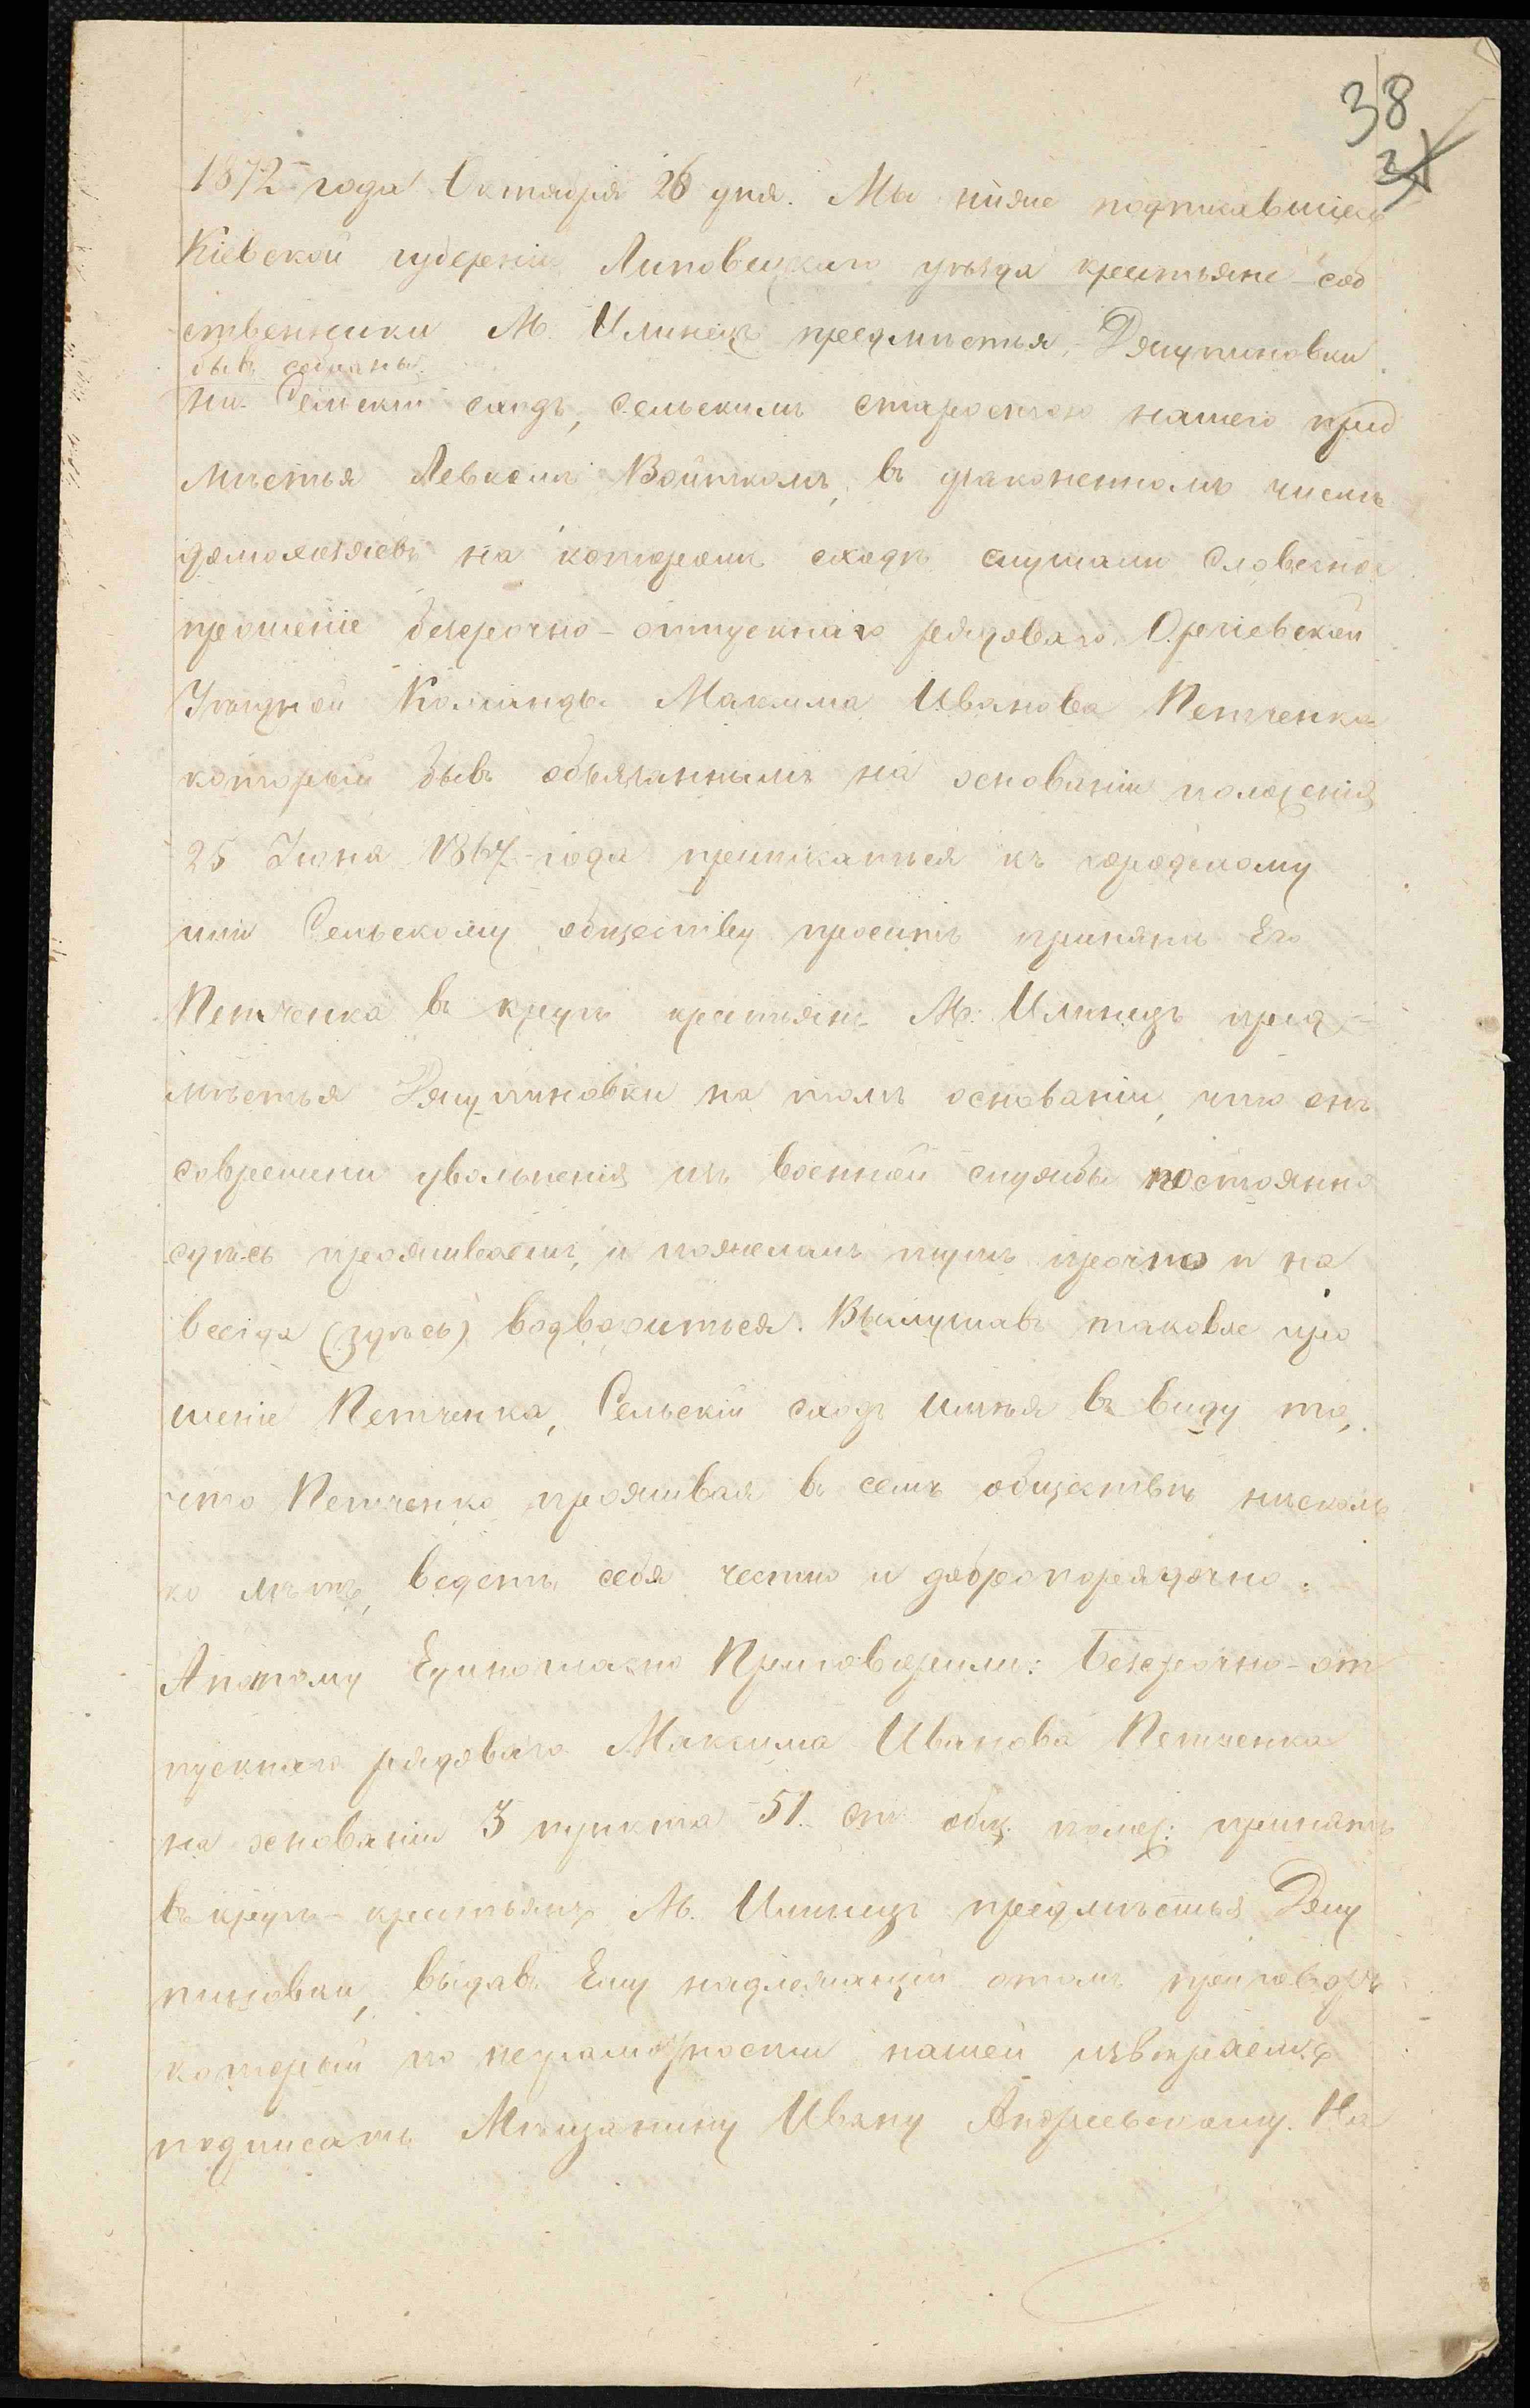 38
1872 года Октября 26 дня. Мы ниже подписавшіеся
Кіевской губерніи Липовецкаго уѣзда крестьяне-соб
ственники М. Илинецъ предмѣстья, Дящупиновки
бывъ собраны
на Сельскій сходъ, Сельскимъ старостою нашего пред
мѣстья Левкомъ Войткомъ, въ узаконенномъ числѣ
домохозяевъ на которомъ сходѣ слушали Словесное
прошеніе безсрочно-отпускнаго рядоваго Оргіевской
Уѣздной Команды Максима Иванова Петченка
который бывъ обязаннымъ на основаніи положенія
25 Іюня 1867 года приписаться къ городскому
или Сельскому обществу проситъ принять Его
Петченка въ кругъ крестьянъ М. Илинецъ пред-
мѣстья Дящупиновки на томъ основаніи, что онъ
современи увольненія изъ военной службы постоянно
судѣсь проживаетъ, и пожелалъ прочно и на
всегда (здѣсь) водвориться. Выслушавъ таковое про
шеніе Петченка, Сельскій сходъ имѣя въ виду то,
что Петченко проживая въ семъ обществѣ нѣсколь
ко лѣтъ, ведетъ себя честно и добропорядочно.
Апотому Единогласно Приговорили: Безсрочно-от
пускнаго рядоваго Максима Иванова Петченка
на основаніи 3 пункта 51. ст общ. полож: принять
въ кругъ крестьянъ М. Илинецъ предмѣстья Дящу
пиновки, выдавъ Ему надлежащій отомъ приговоръ
который по неграмотности нашей ввѣряемъ
подписать Мѣщанину Ивану Андреевскому. На